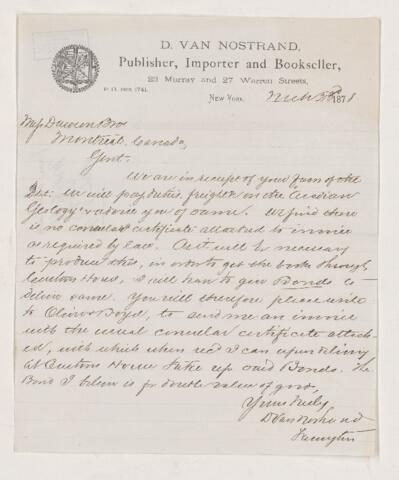 D. VAN NOSTRAND,
Publisher, Importer and Bookseller,
23 Murray and 27 Warren Streets,
P. O. BOX 1741.
NEW YORK, 1878
Dawson Bros
Montreal, Canada,
Gent.
We are in receipt of your favor of the
We will pay duties, freight &c on the Acadian
Geology & advise you of same. We find there
is no consular certificate attached to invoice
as required by law. As it will be necessary
to produce this, in order to get the books through
Custom House, I will have to give Bonds to
deliver same. You will therefore please write
to Oliver & Boyd, to send me an invoice
with the usual consular certificate attach-
ed, with which when recd I can upon delivery
at Custom House take up said Bonds. The
Bond I believe is for double value of goods,
Yours truly,
D. Van Nostrand